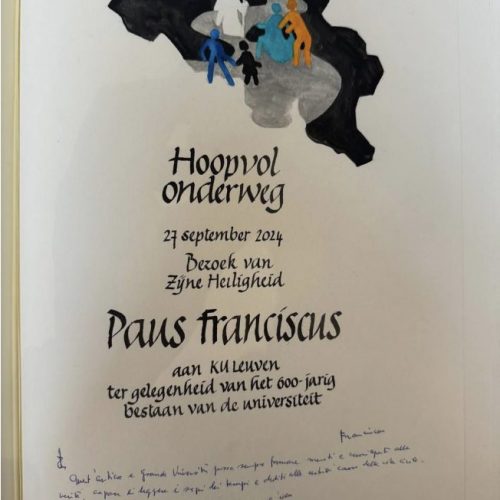 Hoopvol
onderweg
27 september 2024
Bezoek van
Zijne Heiligheid
Paus Franciscus
aan KU Leuven
ter gelegenheid van het 600-jarig
bestaan van de universiteit
Franciscus
Quest'antica e Grande Università possa sempre formare menti e cuori aperti alla
verità, capaci di leggere i segni dei tempi e dediti alle